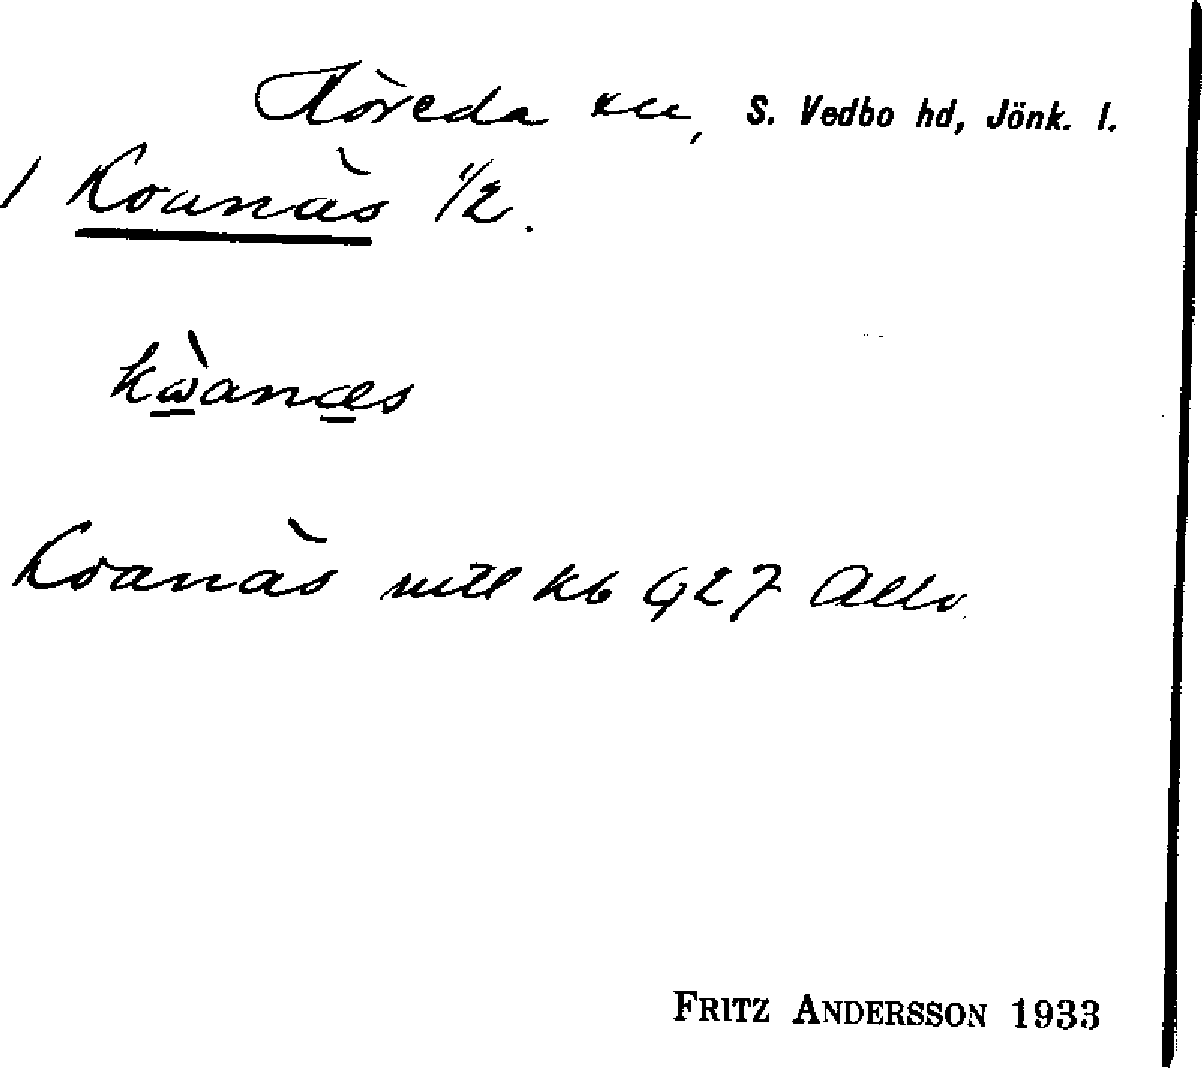 Höreda sn, S. Vedbo hd, Jönk. l.
/ Koanäs 1/2.
kωanæs
Koanäs mtl kb G27 Allo
FRITZ ANDERSSON 1933